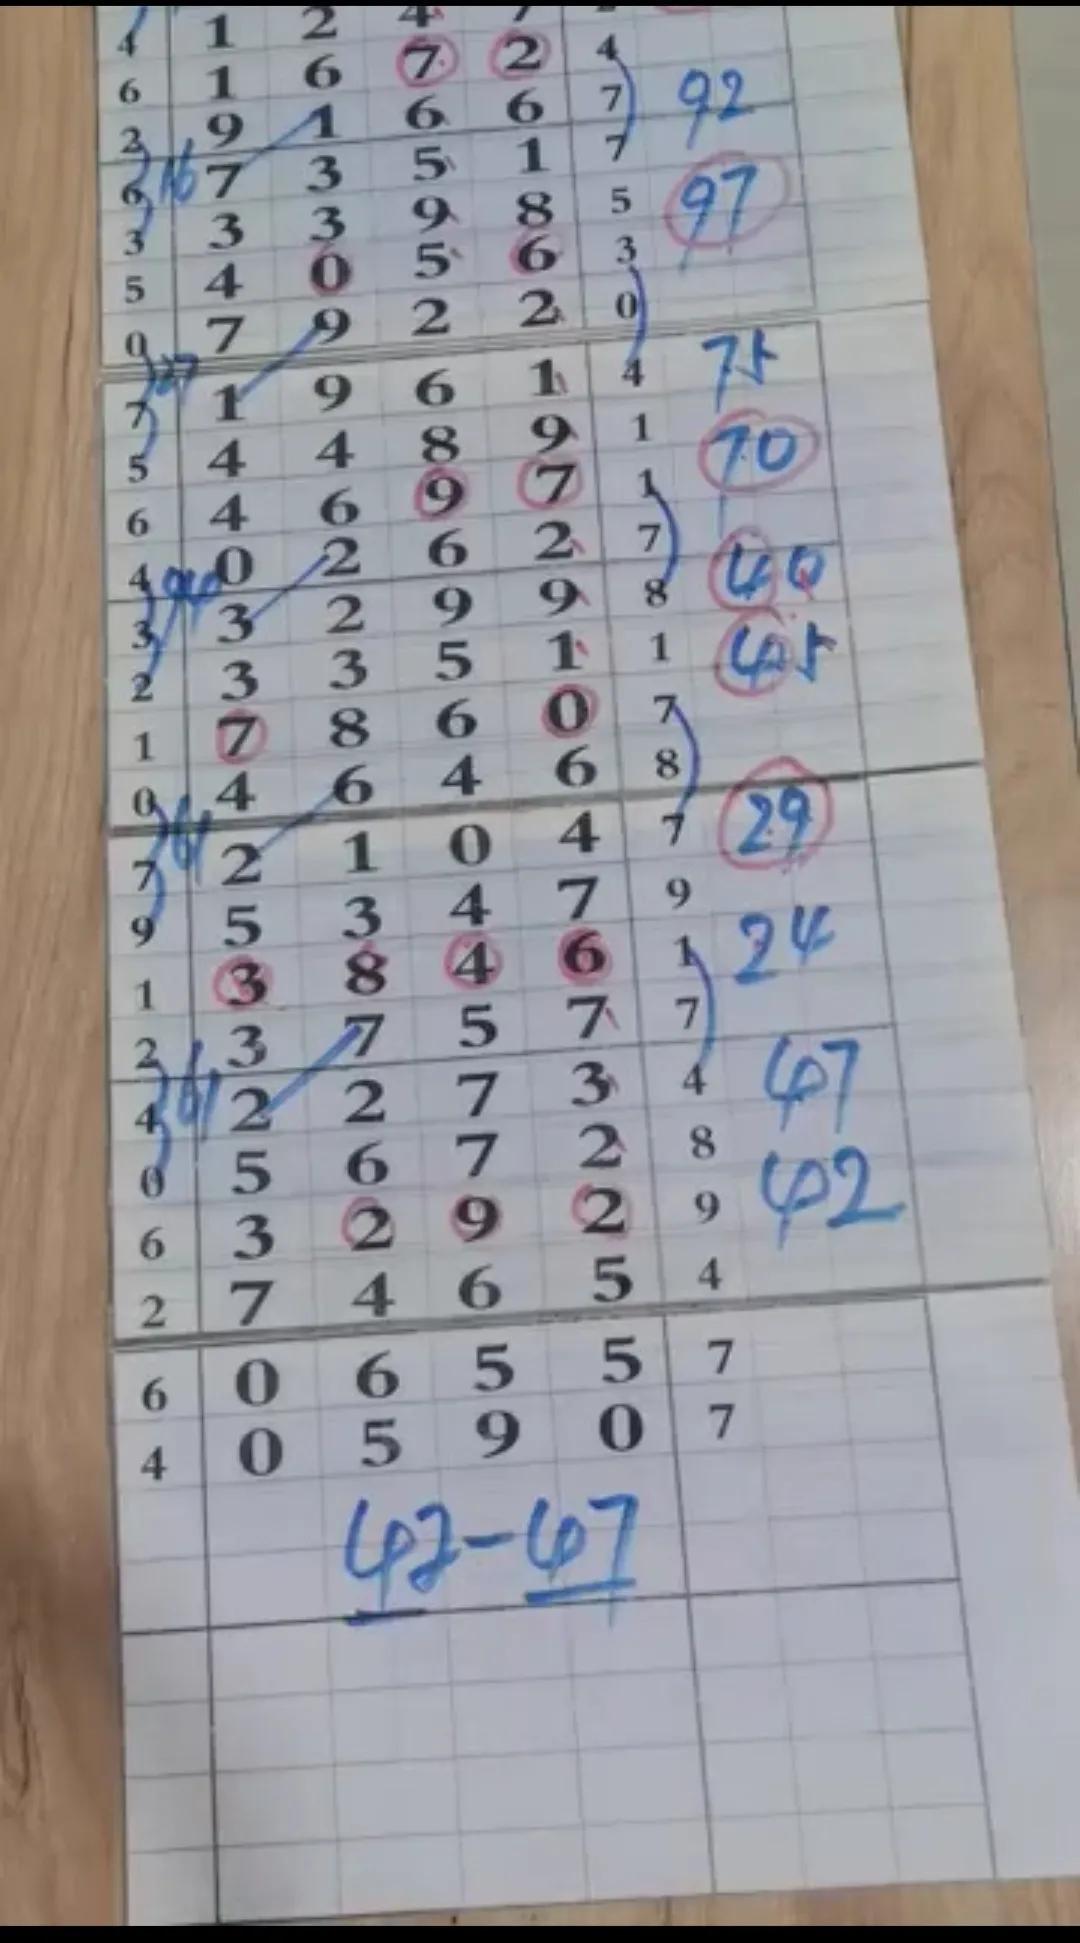 4 1 2 4 7
6 1 6 7 2 4
2 9 1 6 6 7 92
6 16 7 3 5 1 7
3 3 3 9 8 5 97
5 4 0 5 6 3
0 7 9 2 2 0
7 27 1 9 6 1 4 75
5 4 4 8 9 1 70
6 4 6 9 7 1
4 0 2 6 2 7 40
3 3 2 9 9 8
2 3 3 5 1 1 45
1 7 8 6 0 7
0 4 6 4 6 8
7 61 2 1 0 4 7 29
9 5 3 4 7 9
1 3 8 4 6 1 24
2 3 7 5 7 7
4 61 2 2 7 3 4 47
0 5 6 7 2 8
6 3 2 9 2 9 42
2 7 4 6 5 4
6 0 6 5 5 7
4 0 5 9 0 7
42-47